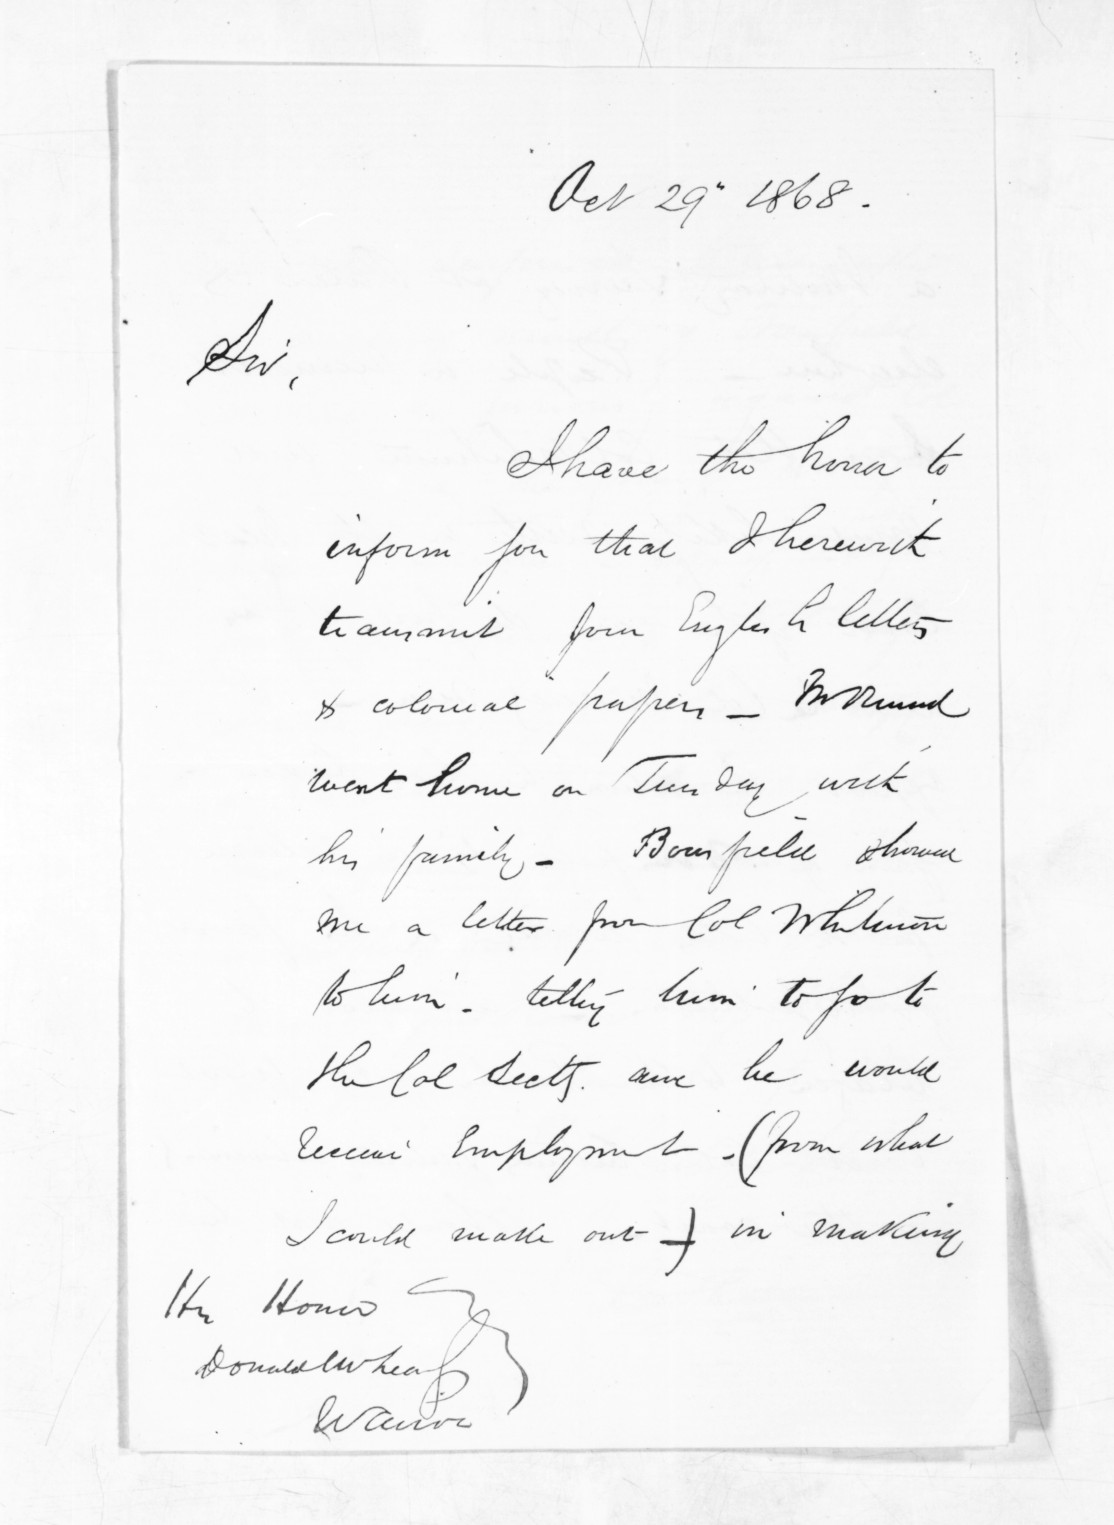 Oct 29" 1868.
Sir,
I have the honor to
inform you that I herewith
transmit your English letters
& colonial papers _ Mr Ormond
went home on Tuesday with
his family _ Bousfield showed
me a letter from Col Whitmore
to him - telling him to go to
the Col Secty. and he would
receive Employment - (from what
I could make out) in making
His Honor
Donald McLean
Wairoa